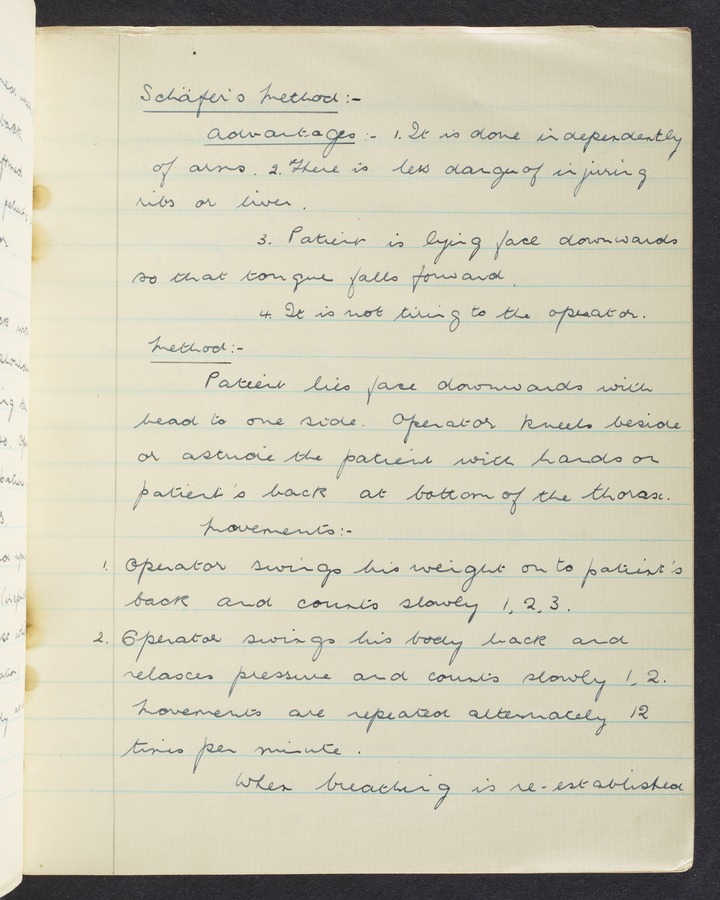 Schäfer's Method:-
Advantages:- 1. It is done independently
of arms. 2. There is less danger of injuring
ribs or liver.
3. Patient is lying face downwards
so that tongue falls forward.
4. It is not tiring to the operator.
Method:-
Patient lies face downwards with
head to one side. Operator kneels beside
or astride the patient with hands on
patient's back at bottom of the thorax.
Movements:-
1. Operator swings his weight on to patient's
back and counts slowly 1, 2, 3.
2. Operator swings his body back and
relaxes pressure and counts slowly 1, 2.
Movements are repeated alternately 12
times per minute.
When breathing is re-established